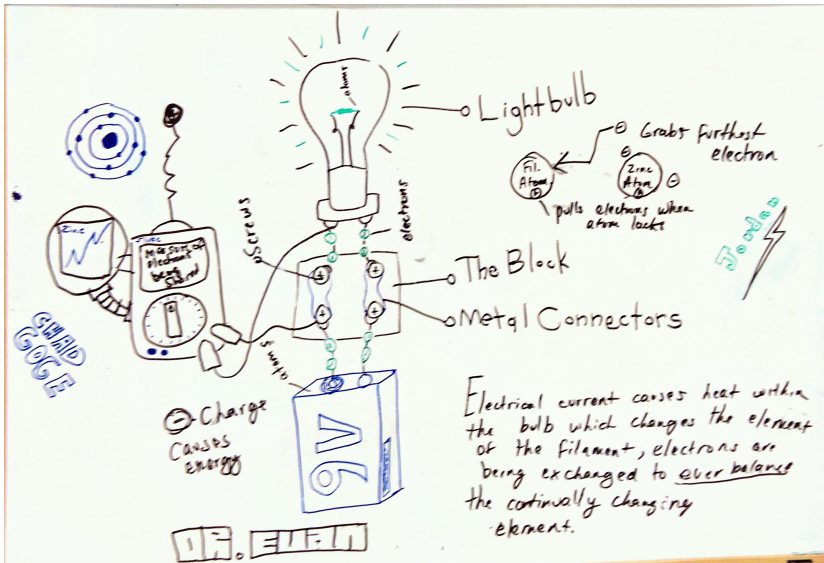 Lightbulb
atoms
Grabs furthest
electron
Fil.
Atom
Zinc
Atom
pulls electrons when
atom lacks
Jordan
electrons
Screws
The Block
Metal Connectors
Zinc
Measure of
electrons
being
shared
CHAD
GOGE
atoms
- Charge
causes
energy
9V
Electrical current causes heat within
the bulb which changes the element
of the filament, electrons are
being exchanged to over balance
the continually changing
element.
DR. EVAN